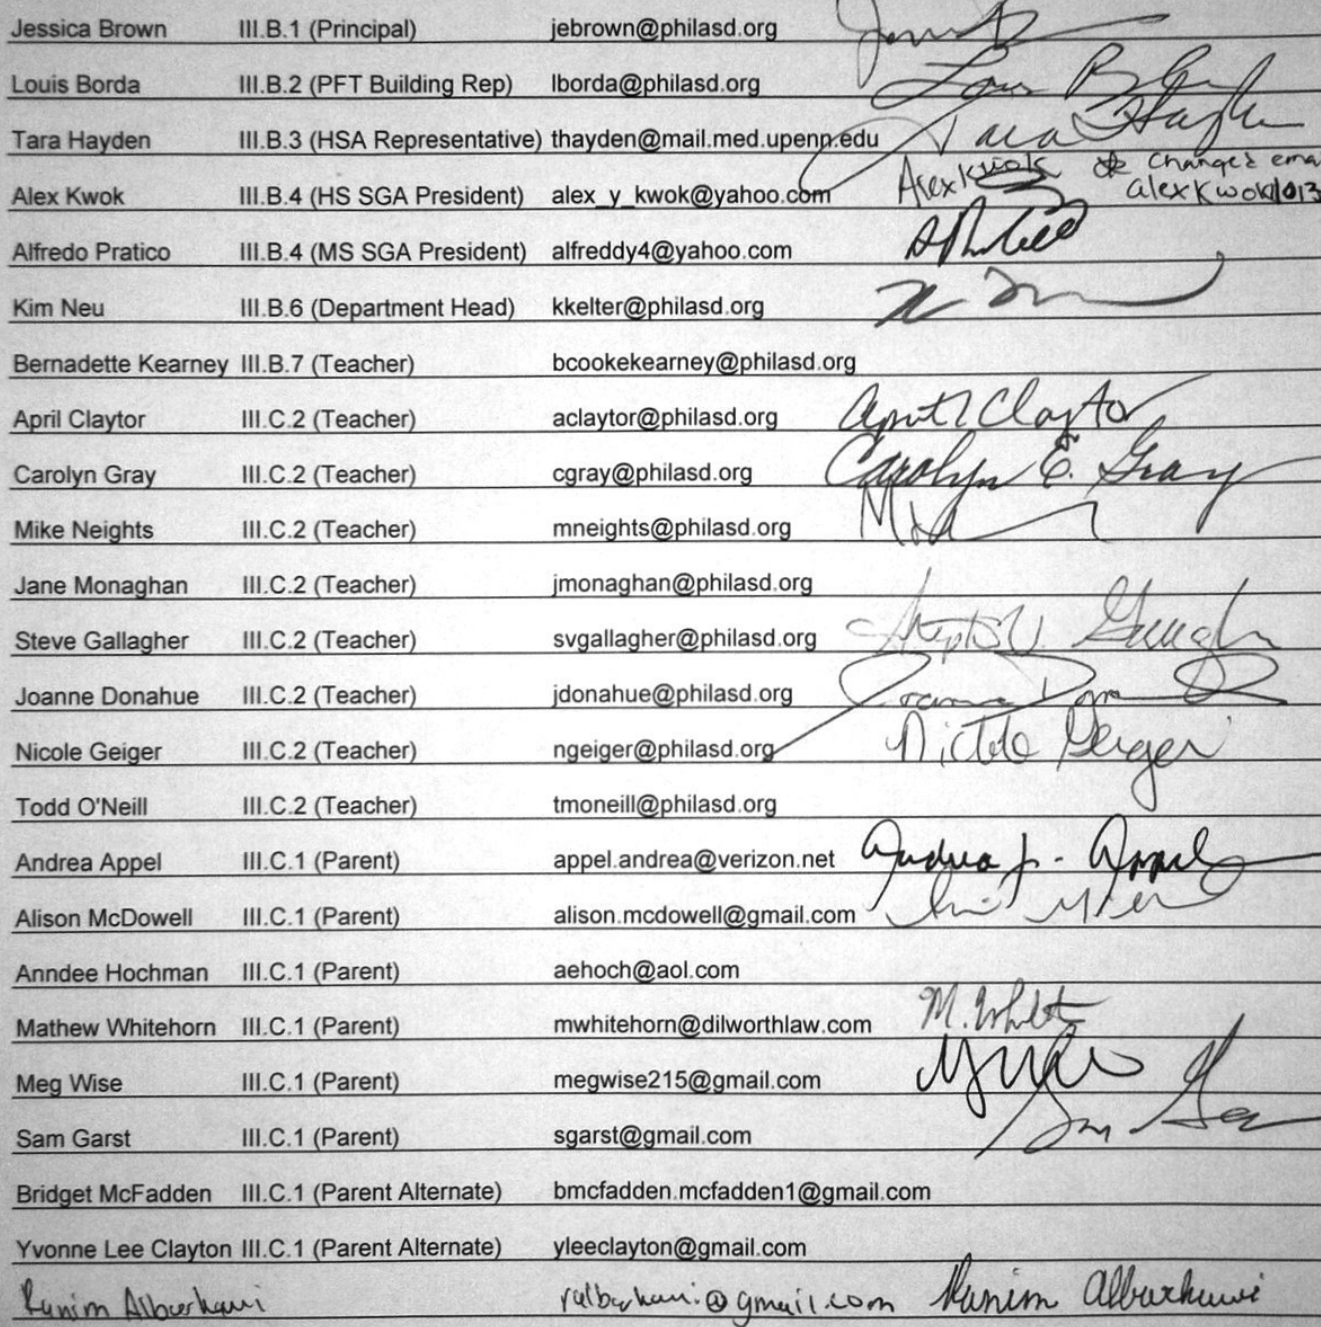 Jessica Brown III.B.1 (Principal) jebrown@philasd.org
Louis Borda III.B.2 (PFT Building Rep) lborda@philasd.org
Tara Hayden III.B.3 (HSA Representative) thayden@mail.med.upenn.edu Tara Hayden
Alex Kwok III.B.4 (HS SGA President) alex_y_kwok@yahoo.com Alex Kwok changed ema
alexkwok1013
Alfredo Pratico III.B.4 (MS SGA President) alfreddy4@yahoo.com
Kim Neu III.B.6 (Department Head) kkelter@philasd.org
Bernadette Kearney III.B.7 (Teacher) bcookekearney@philasd.org
April Claytor III.C.2 (Teacher) aclaytor@philasd.org April Claytor
Carolyn Gray III.C.2 (Teacher) cgray@philasd.org Carolyn E. Gray
Mike Neights III.C.2 (Teacher) mneights@philasd.org
Jane Monaghan III.C.2 (Teacher) jmonaghan@philasd.org
Steve Gallagher III.C.2 (Teacher) svgallagher@philasd.org
Joanne Donahue III.C.2 (Teacher) jdonahue@philasd.org
Nicole Geiger III.C.2 (Teacher) ngeiger@philasd.org Nicole Geiger
Todd O'Neill III.C.2 (Teacher) tmoneill@philasd.org
Andrea Appel III.C.1 (Parent) appel.andrea@verizon.net Andrea J. Appel
Alison McDowell III.C.1 (Parent) alison.mcdowell@gmail.com
Anndee Hochman III.C.1 (Parent) aehoch@aol.com
Mathew Whitehorn III.C.1 (Parent) mwhitehorn@dilworthlaw.com
Meg Wise III.C.1 (Parent) megwise215@gmail.com
Sam Garst III.C.1 (Parent) sgarst@gmail.com
Bridget McFadden III.C.1 (Parent Alternate) bmcfadden.mcfadden1@gmail.com
Yvonne Lee Clayton III.C.1 (Parent Alternate) yleeclayton@gmail.com
Ranim Albarkawi Ranim Albarkawi